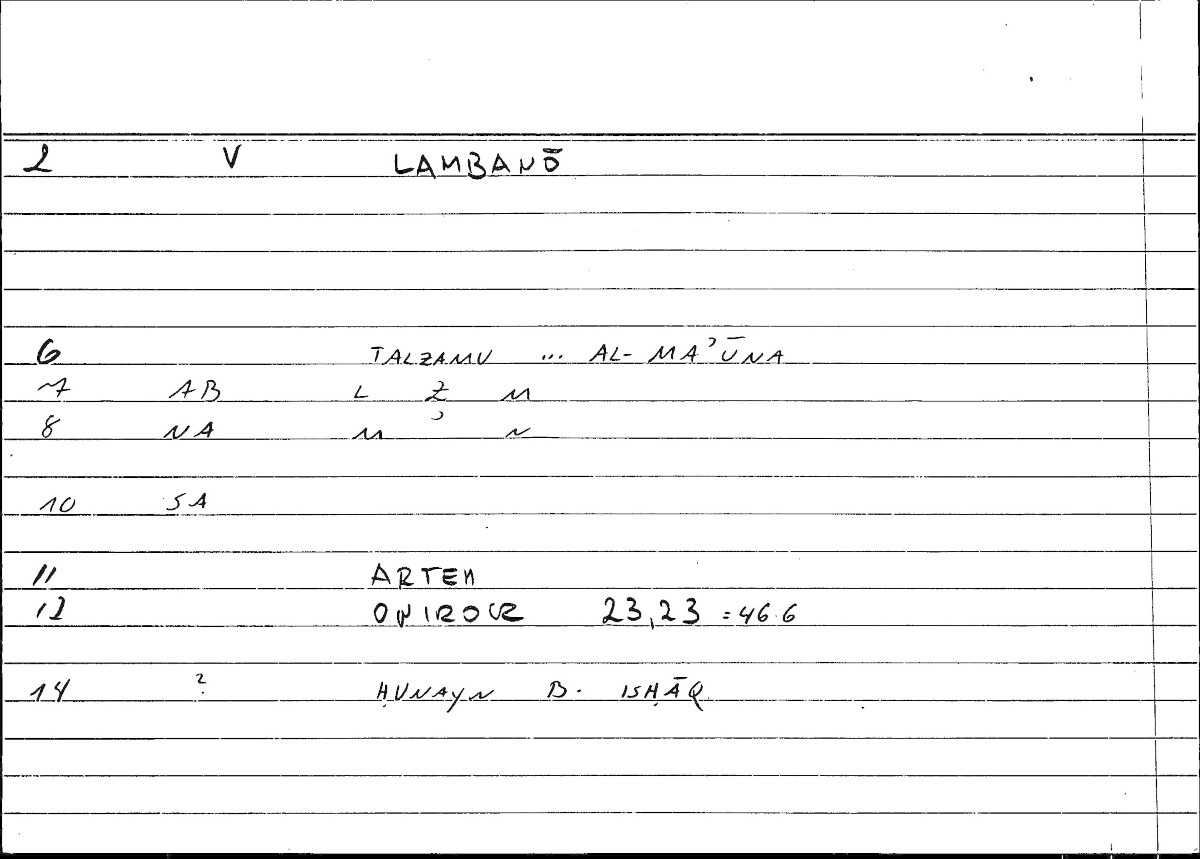 2 V LAMBANŌ
6 TALZAMU ... AL- MAʾŪNA
7 AB L Z M
8 NA M ʾ N
10 SA
11 ARTEM
12 ONIROCR 23,23 = 46.6
14 ? ḤUNAYN B. ISḤĀQ